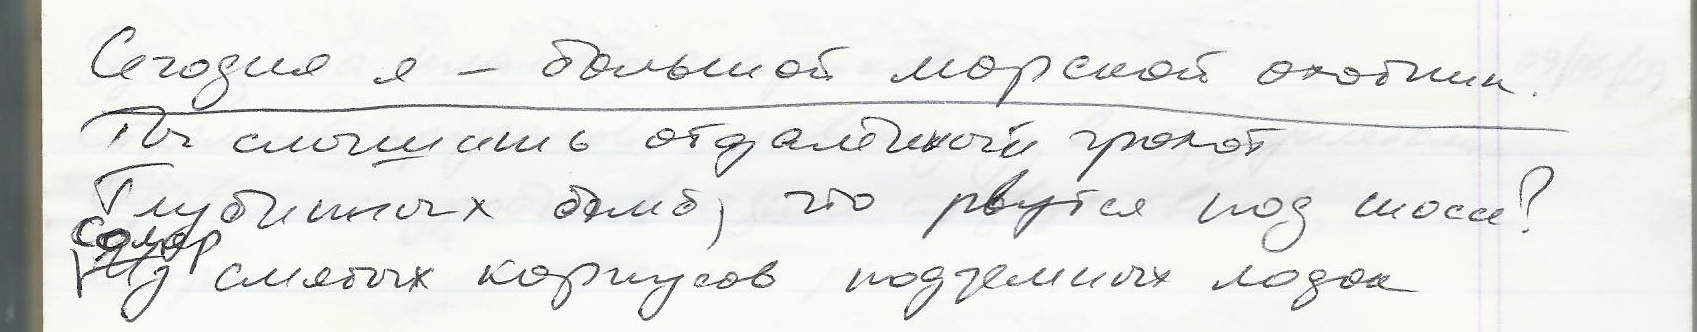 Сегодня я – большой морской охотник.
Ты слышишь отдалённый грохот
Глубинных бомб, что рвутся под шоссе?
Соляр
Из смятых корпусов подземных лодок